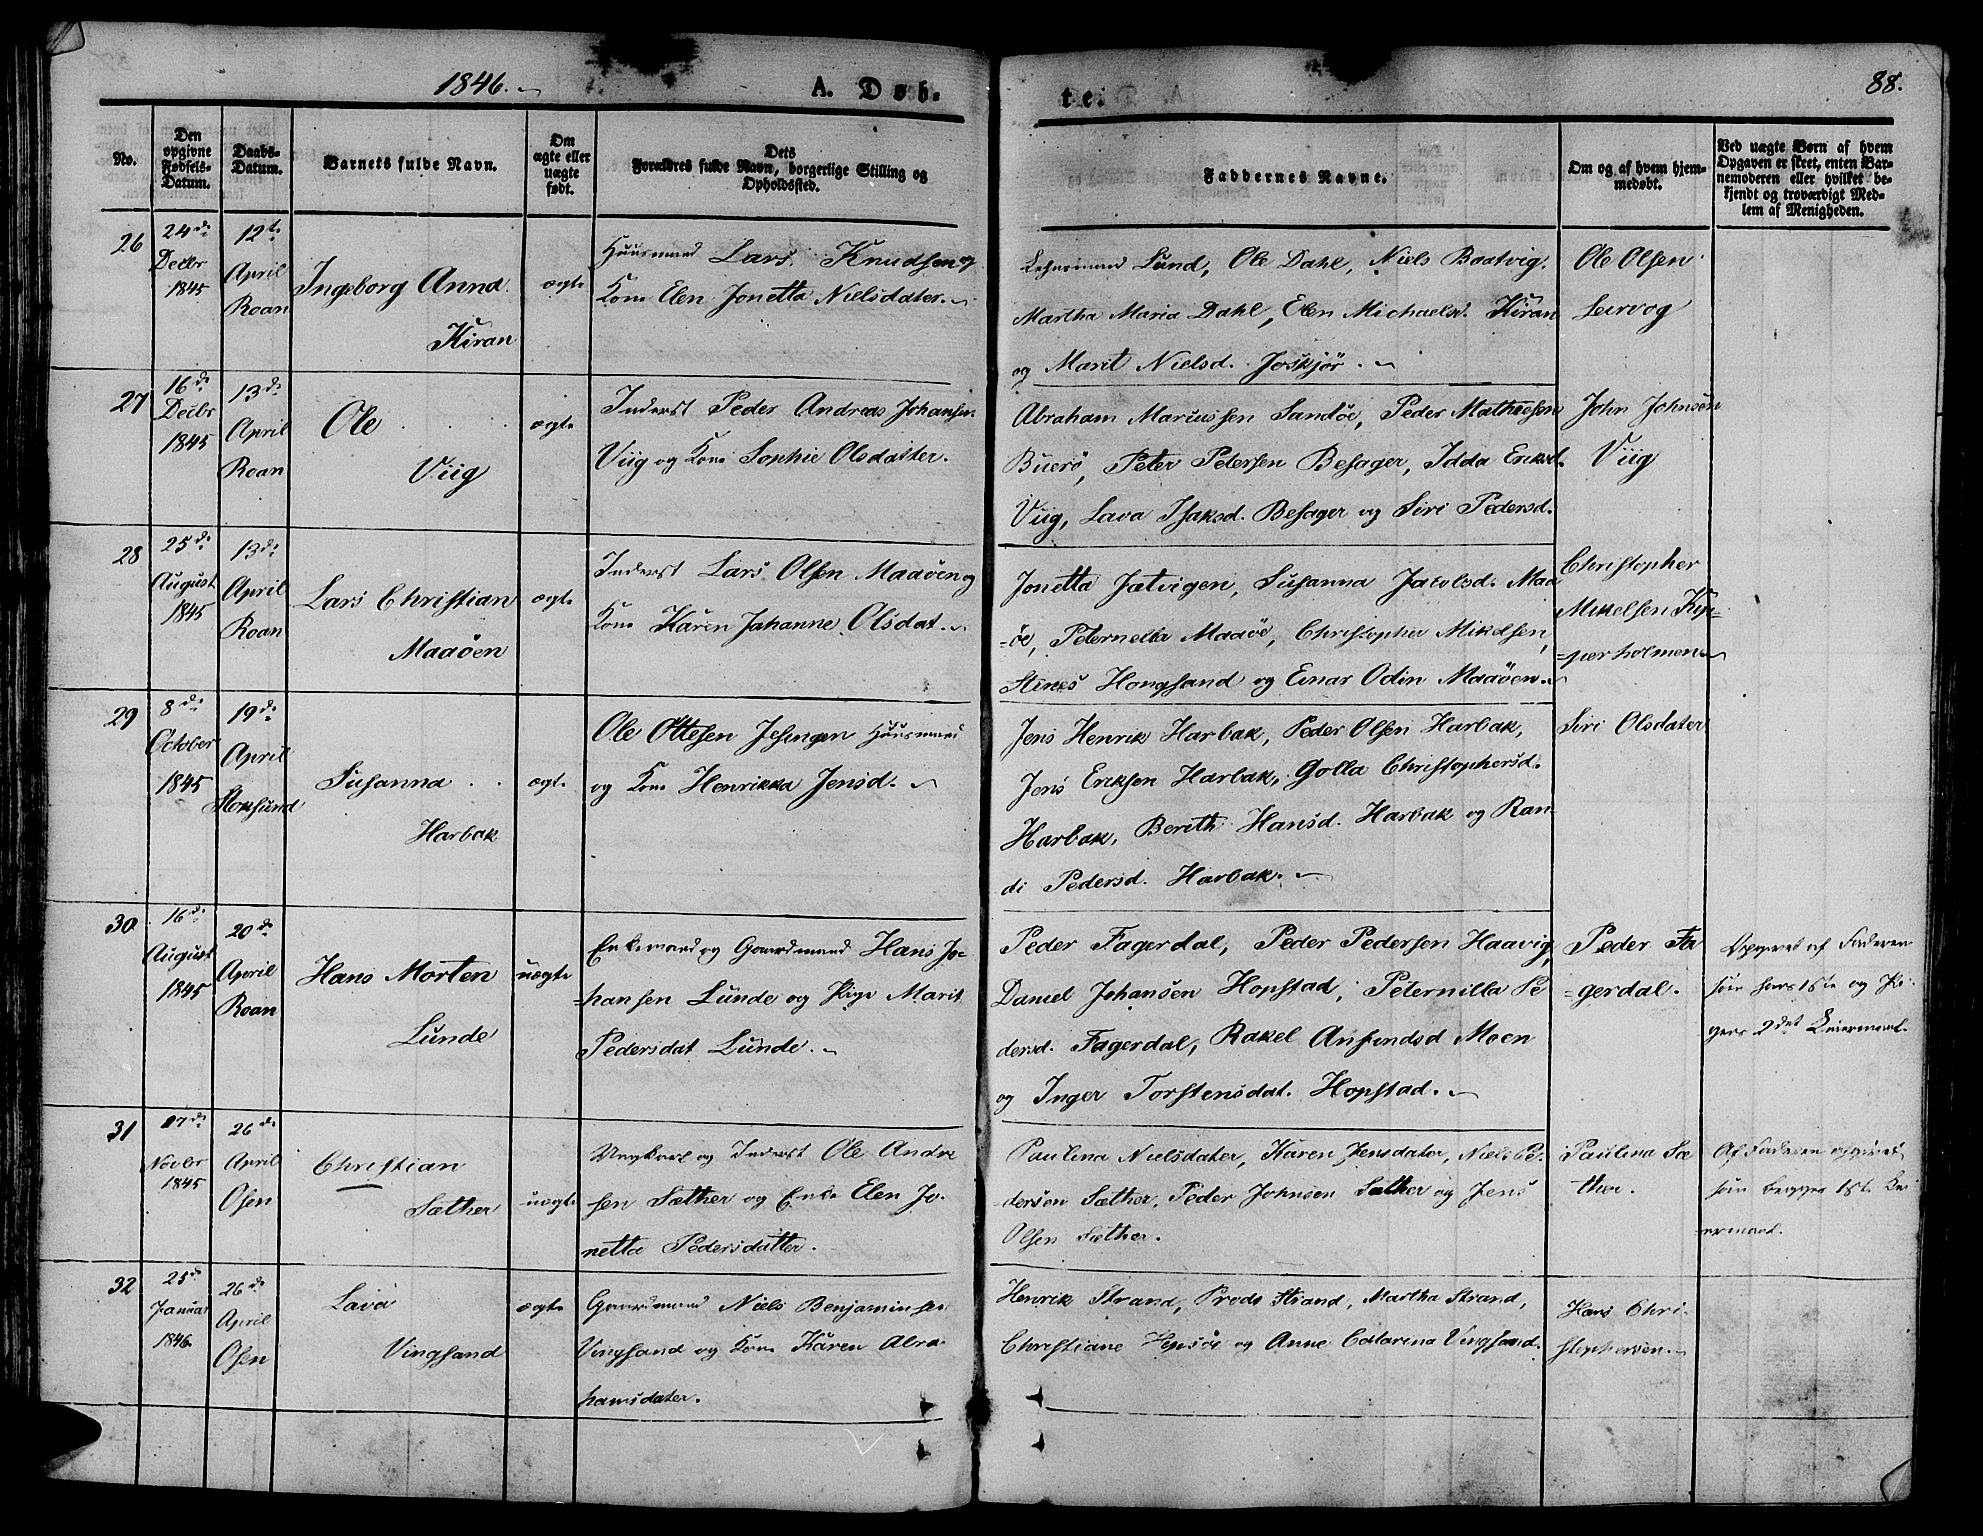 1846.
A. Døb-
te.
88.
No.
Den opgivne Fødsels-Datum.
Daabs-Datum.
Barnets fulde Navn.
Om ægte eller uægte født.
Dets Forældres fulde Navn, borgerlige Stilling og Opholdssted.
Faddernes Navne.
Om og af hvem hjemmedøbt.
Ved uægte Børn af hvem
Opgaven er skeet, enten Bar-
nemoderen eller hvilket be-
kjendt og troværdigt Med-
lem af Menigheden.
26
24de
Decbr
1845
12te
April
Roan
Ingeborg Anna
Kiran
ægte
Huusmand Lars Knudsen og
Kone Elen Jonetta Nielsdater.
Lehnsmand Lund, Ole Dahl, Niels Baatvig,
Martha Maria Dahl, Elen Michaelsd. Kiran
og Marit Nielsd. Joskjør.
Ole Olsen
Leirvog
27
16de
Decbr
1845
13de
April
Roan
Ole
Viig
ægte
Inderst Peder Andreas Johansen
Viig og Kone Sophie Olsdatter.
Abraham Mariussen Sandøe, Peder Matheesen
Buerø, Peter Petersen Besager, Idda Eriksd.
Viig, Lava Isaksd. Besager og Siri Pedersd.
John Johnsen
Viig
28
25de
August
1845
13de
April
Roan
Lars Christian
Maaøen
ægte
Inderst Lars Olsen Maaøen og
Kone Karen Johanne Olsdat.
Jonetta Jætvigen, Susanna Jacobsd. Maa
=øe, Peternella Maaøe, Christopher Mikelsen,
Stines Hongsand og Einar Odin Maaøen.
Christopher
Mikkelsen Kip-
=perholmen
29
8de
October
1845
19de
April
Stoksund
Susanna
Harbak
ægte
Ole Ottesen Jesingen Huusmand
og Kone Henrikka Jensd.
Jens Henrik Harbak, Peder Olsen Harbak,
Jens Eriksen Harbak, Golla Christophersd.
Harbak, Bereth Hansd. Harbak og Ran-
di Pedersd. Harbak.
Siri Olsdater
30
16de
August
1845
20de
April
Roan
Hans Morten
Lunde
uægte
Enkemand og Gaardmand Hans Jo-
hansen Lunde og Pige Marit
Pedersdat. Lunde.
Peder Fagerdal, Peder Pedersen Haavig,
Daniel Johansen Hopstad, Peternilla Pe
dersd. Fagerdal, Rakel Anfindsd Moen
og Inger Torstensdat. Hopstad.
Peder Fa
=gerdal.
Opgivet af Faderen
som hans 1ste og Pi-
gens 2det Leiermaal.
31
17de
Novbr
1845
26de
April
Osen
Christian
Sæther
uægte
Ungkarl og Inderst Ole Andre
sen Sæther og Enke Elen Jo-
netta Pedersdatter.
Paulina Nielsdater, Karen Jensdater, Niels Pe-
dersen Sæther, Peder Johnsen Sæther og Jens
Olsen Sæther.
Paulina Sæ
ther.
Af Faderen opgivet
som begges 1ste Lei
ermaal.
32
25de
Januar
1846
26de
April
Osen
Lava
Vingsand
ægte
Gaardmand Niels Benjaminsen
Vingsand og Kone Karen Abra
hamsdater.
Henrik Strand, Preds Strand, Martha Strand,
Christiane Hepsøe og Anne Catarina Vingsand.
Hans Chri-
stophersen.